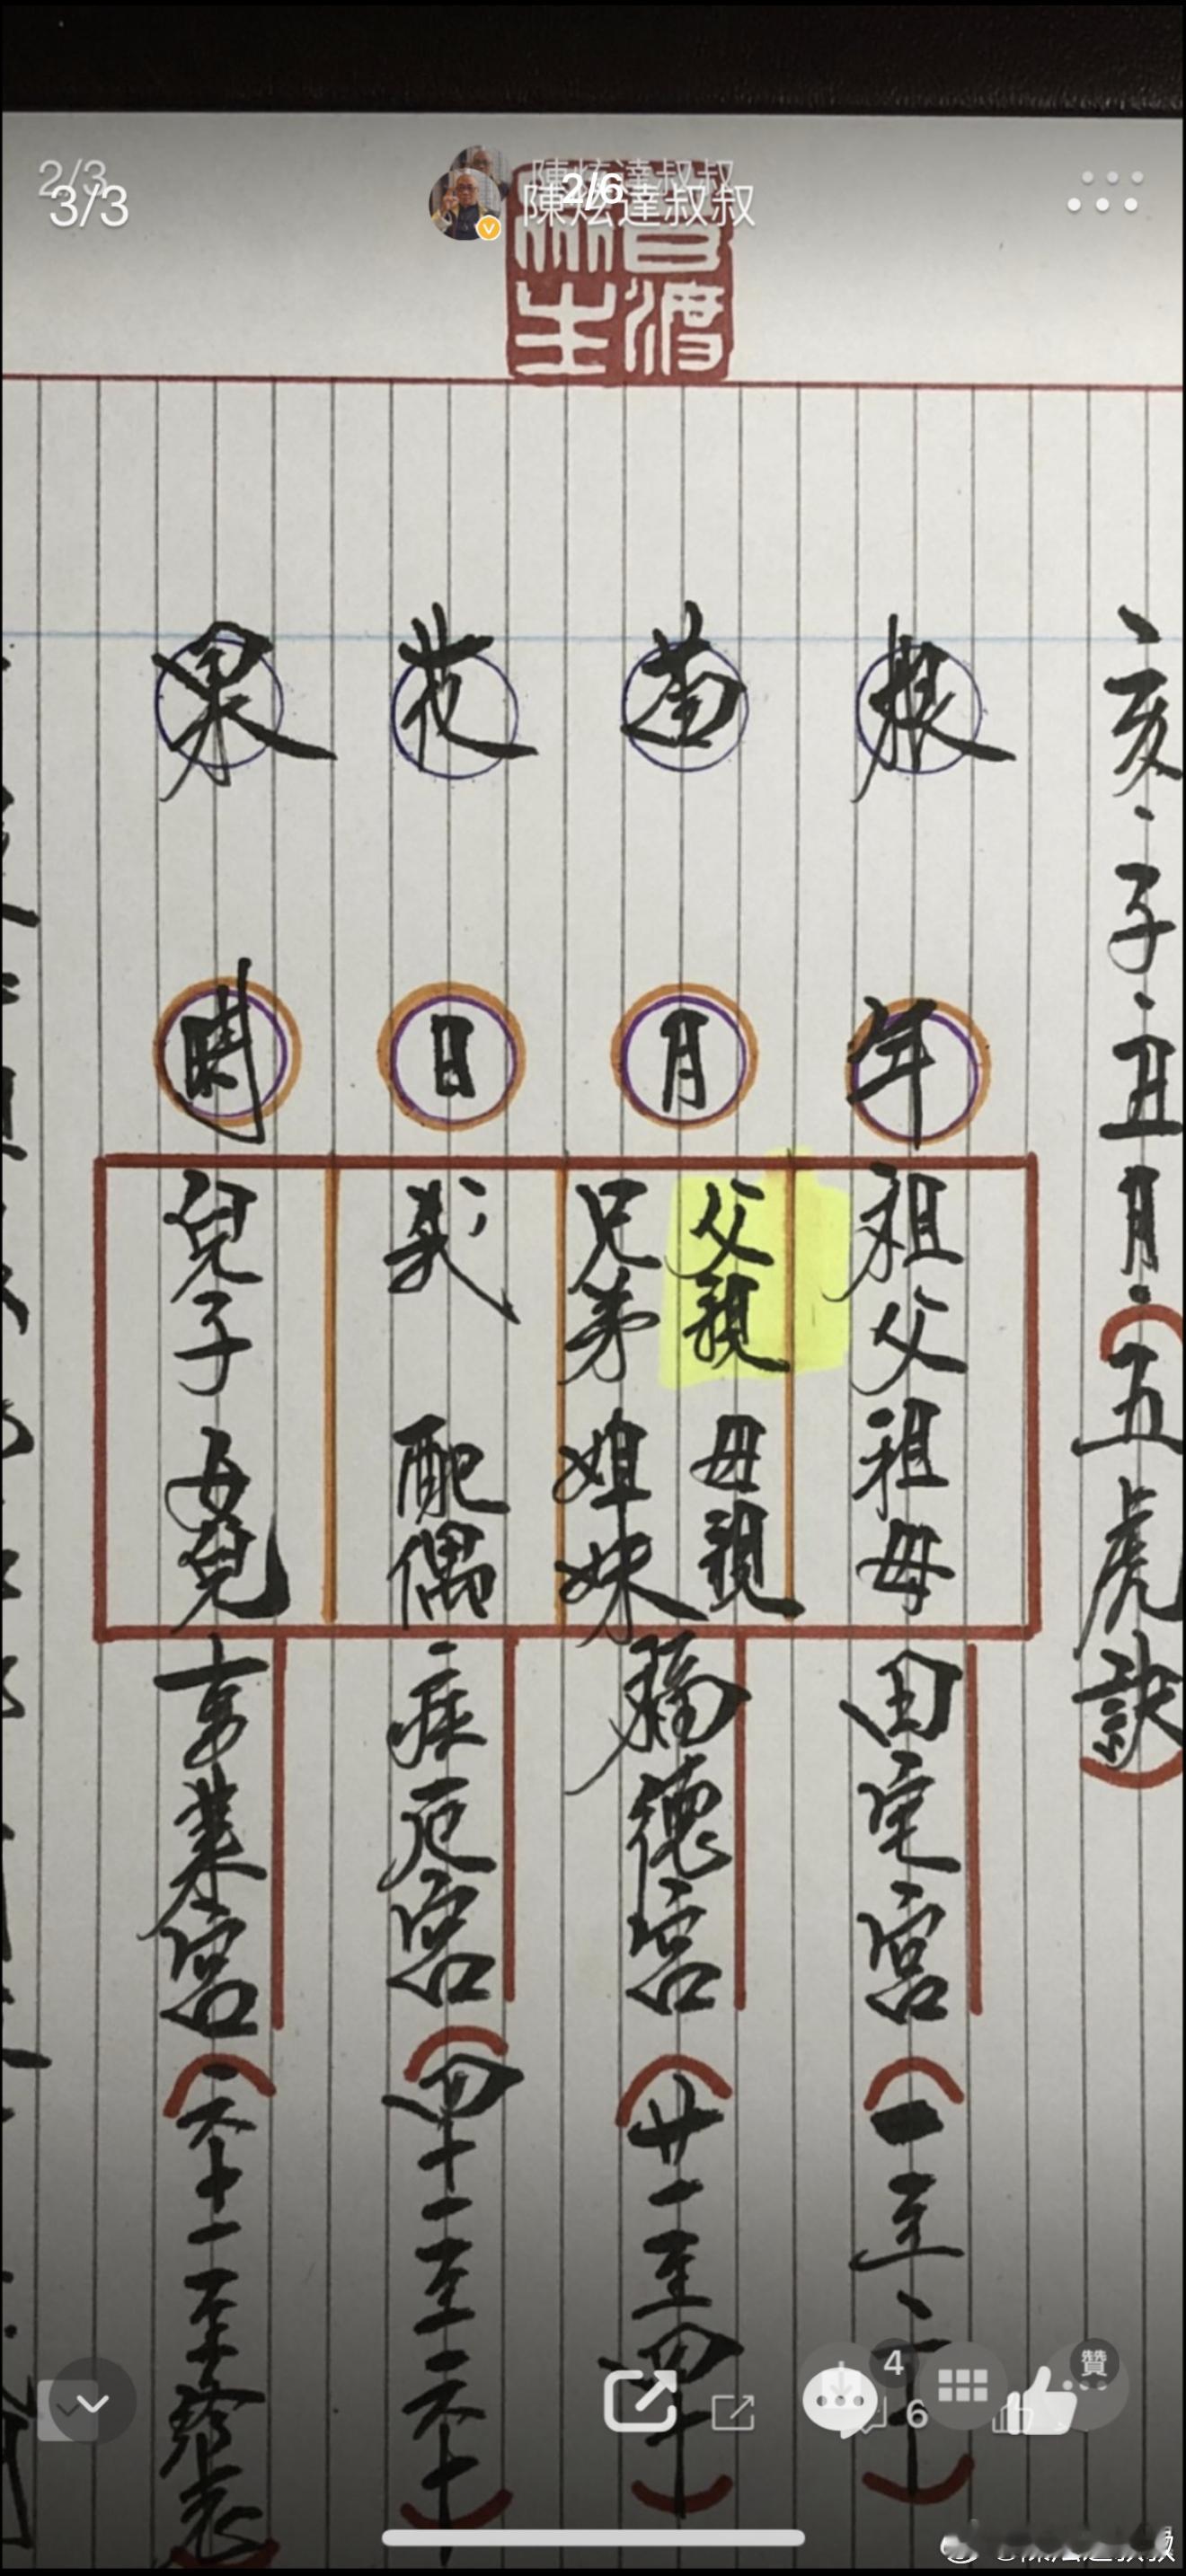 2/3
3/3
2/6
陳炫達叔叔
陳炫達叔叔
亥、子、丑月、(五虎訣)
根
年
祖父祖母
田宅宮(一至二十)
苗
月
父親 母親
兄弟 姐妹
福德宮(廿一至四十)
花
日
我 配偶
疾厄宮(四十一至六十)
果
時
兒子 女兒
事業宮(六十一至終老)
4
6
贊